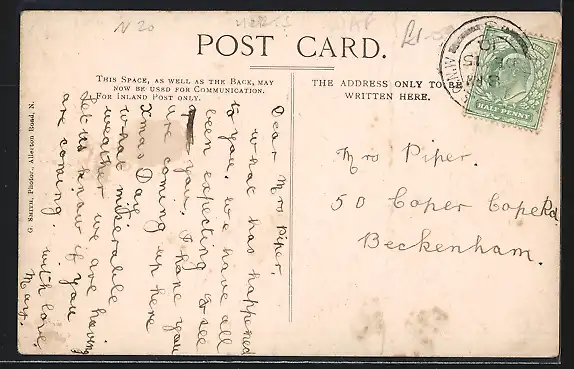 N 20
POST CARD.
THIS SPACE, AS WELL AS THE BACK, MAY
NOW BE USED FOR COMMUNICATION.
FOR INLAND POST ONLY.
THE ADDRESS ONLY TO BE
WRITTEN HERE.
HALF PENNY
G. SMITH, Photor., Allerton Road, N.
Dear Mrs Piper.
what has happened
to you, we have all
been expecting to see
you, I hope you
are coming up here
Xmas Day
what miserable
weather we are having
let us know if you
are coming. with love
Mary.
Mrs Piper.
50 Coper Cope Rd.
Beckenham.